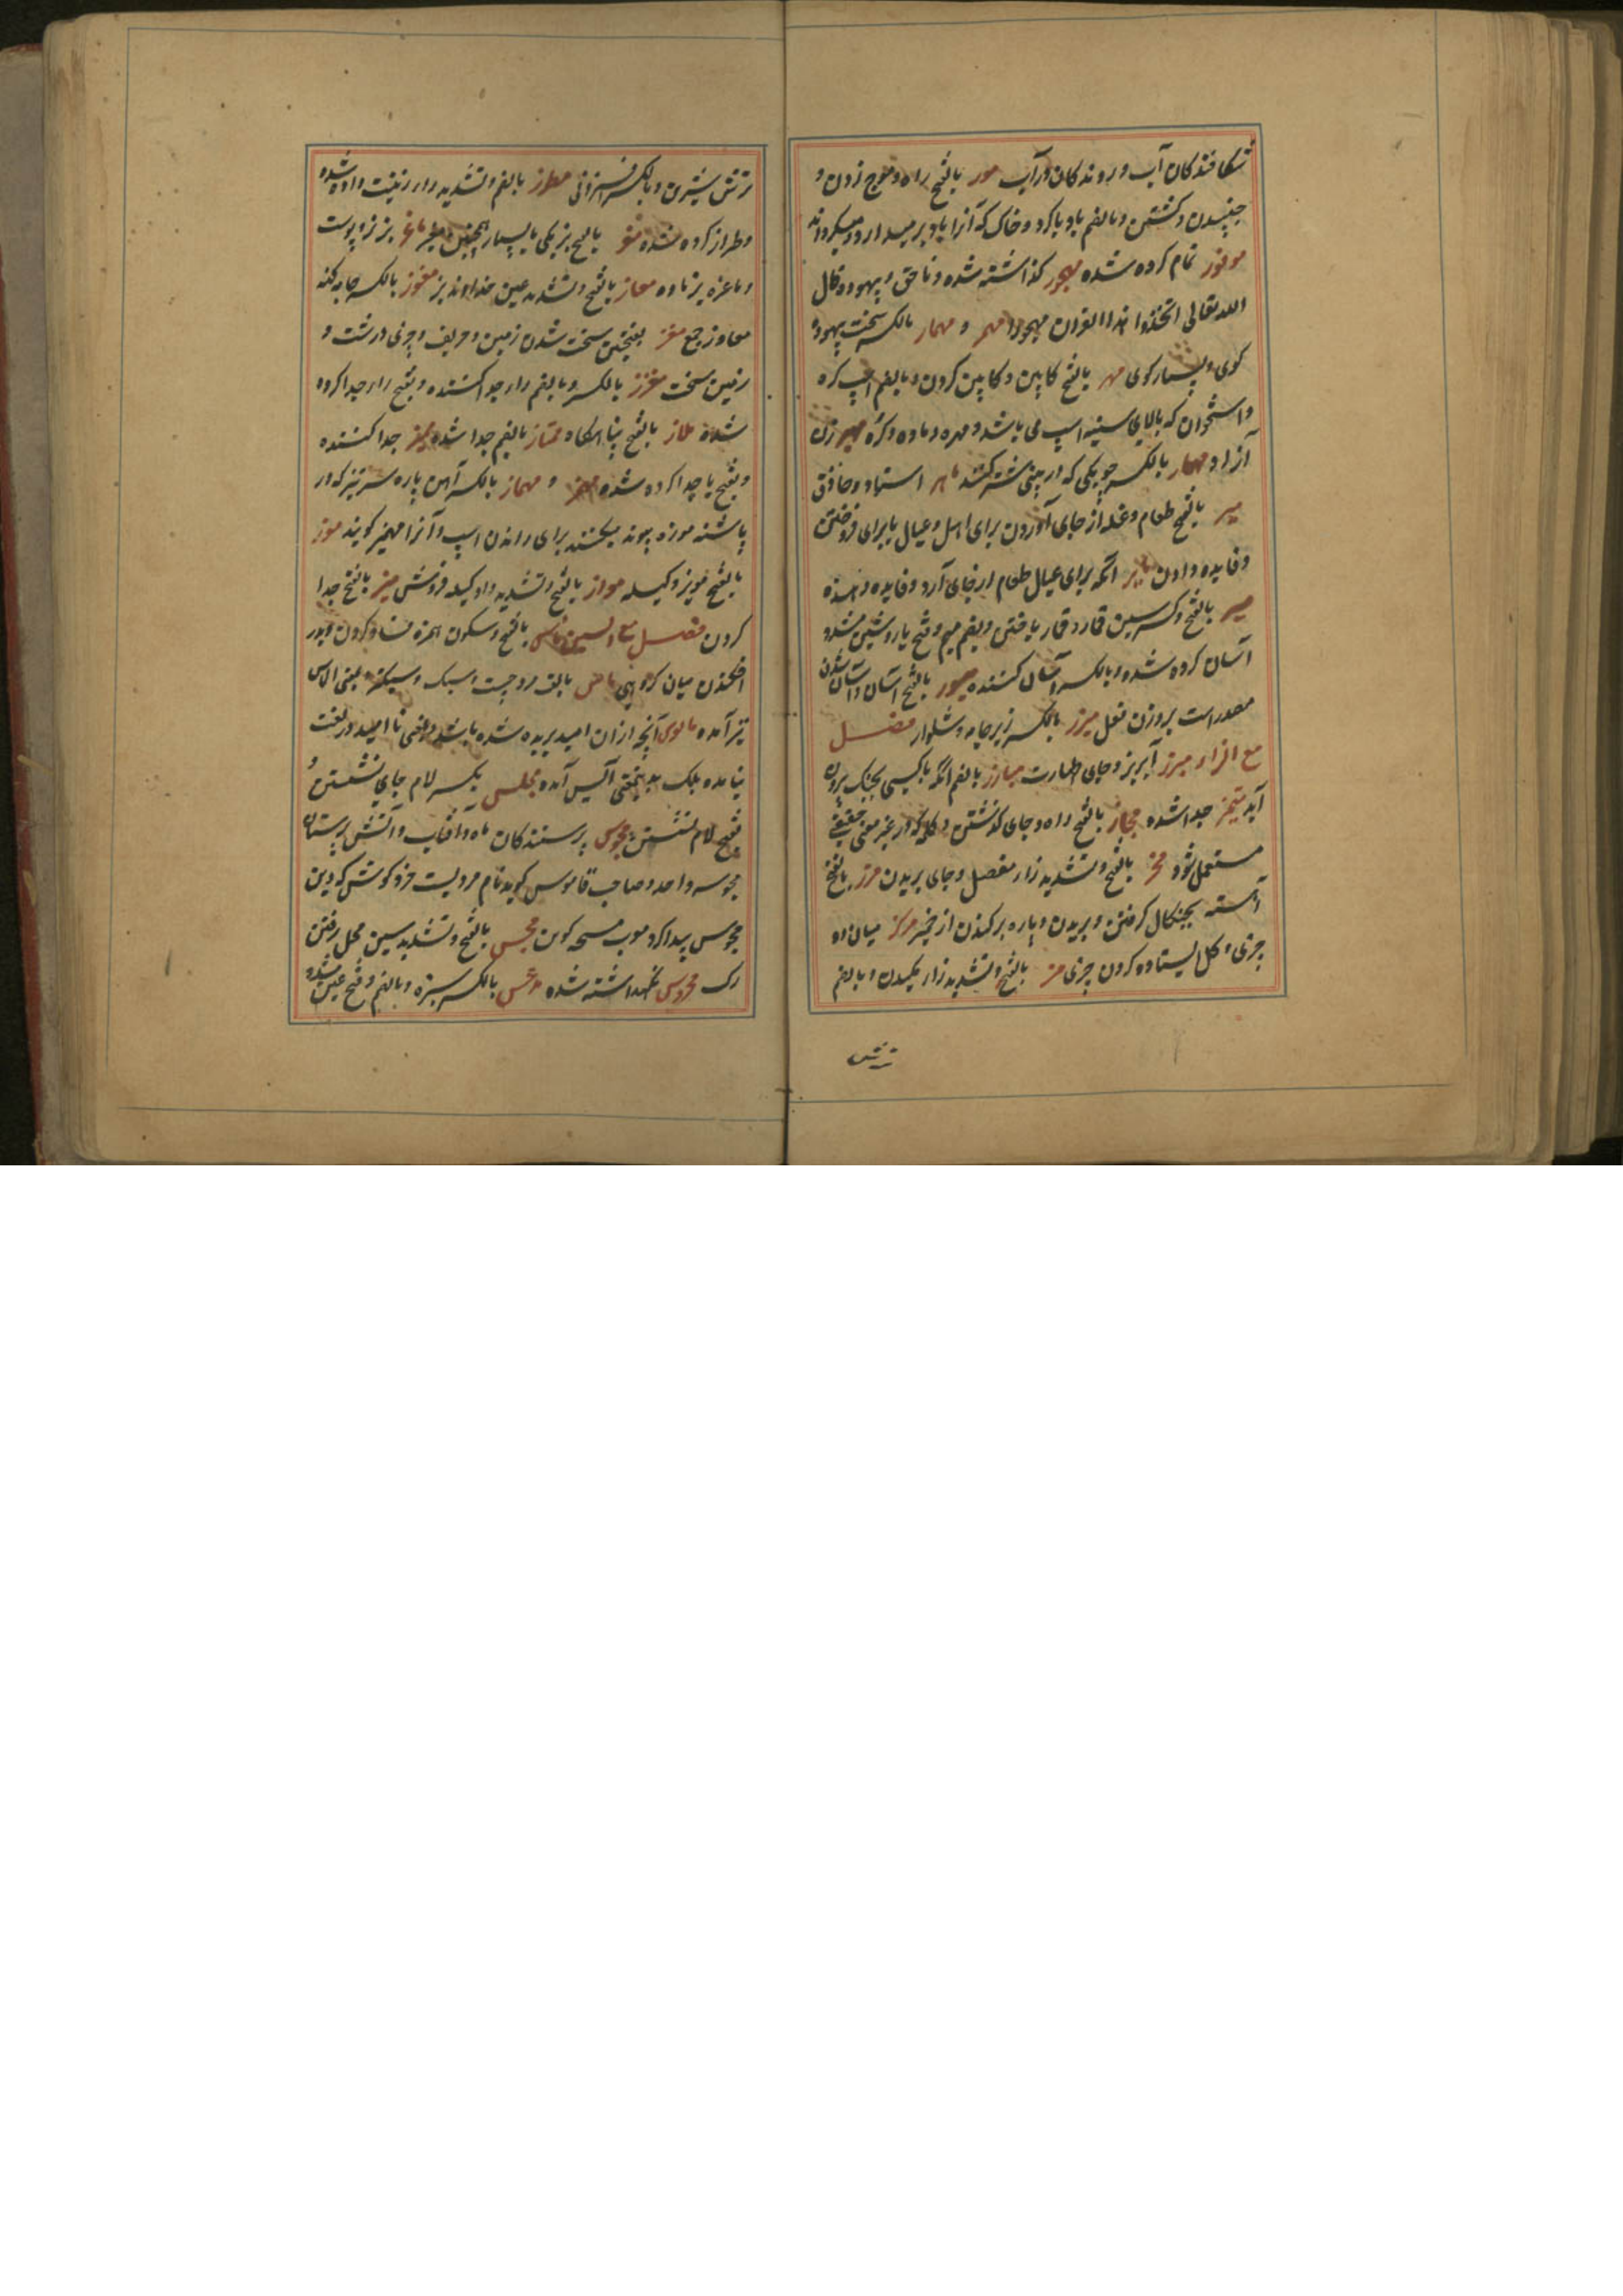 شکافندکان آب و روندکان در آب مور بالفتح راه و موج زدن و
جنبیدن و کشتن و بالضم باد با کرد و خاک که آنرا باد بر میدارد و میکرداند
موفور تمام کرده شده مهجور کذاشته شده و ناحق و بیهوده قال
الله تعالی اتخذوا هذا القران مهجورا مهجر و مهمار بالکسر سخت بیهوده
کوی و بسیار کوی مهر بالفتح کابین و کابین کردن و بالضم اسپ کره
و استخوان که بالای سینه اسپ می باشد و مهره و ماده و کره مهیر زن
آزاد و مهار بالکسر چوبکی که در بینی شتر کنند ماهر استاد و حاذق
میر بالفتح طعام و غله از جای آوردن برای اهل و عیال یا برای فروختن
و فایده دادن مایر انکه برای عیال طعام از جای آرد و فایده دهنده
میسر بالفتح و کسر سین قمار و قمار باختن و بضم میم و فتح یا و شین مشدد
آسان کرده شده و بالکسر آسان کننده میسور بالفتح آسان و آسان شدن
مصدر است بر وزن مفعل میزر بالکسر زیر جامه و شلوار فصل
مع الزاء مبرز آبریز و جای طهارت مبارز بالضم انکه با کسی بجنک بیرون
آید متمیز جدا شده مجاز بالفتح راه و جای کذشتن و کلمه که در غیر معنی حقیقی
مستعمل شود محز بالفتح و تشدید زا مفصل و جای بریدن مرز بالفتح
آهسته بچنکال کرفتن و بریدن و پاره بر کندن از خمیر مرکز میان دو
چیزی و کل ایستاده کردن چیزی مز بالفتح و تشدید زا مکیدن و بالضم
ترش
ترش شیرین و بالکسر افزونی مطرز بالضم و تشدید را زینت داده شده
و طراز کرده شده معز بالفتح بز یکی یا بسیار همچنین ماعز بز نر و پوست
و ماعزه بز ماده معاز بالفتح و تشدید عین خداوند بز معوز بالکسر جامه کهنه
معاوز جمع معز بفتحتین سخت شدن زمین و حریف و چیزی درشت و
زمین سخت مفرز بالکسر و بالضم را جدا کننده و بفتح را جدا کرده
شده ملاز بالفتح پناهکاه ممتاز بالضم جدا شده ممیز جدا کننده
و بفتح یا جدا کرده شده مهمز و مهماز بالکسر آهن پاره سر تیز که در
پاشنه موزه پیوند میکنند برای راندن اسپ و آنرا مهمیز کویند موز
بالفتح مویز و کیله مواز بالفتح و تشدید واو کیله فروش میز بالفتح جدا
کردن فصل مع السین ماس بالفتح و سکون همزه فساد کردن و دور
افکندن میان کروهی ماس بالف مرد چست و سبک و سبکتر و بمعنی الماس
نیز آمده مایوس آنچه از ان امید بریده شده باشد و بمعنی نا امید در لغت
نیامده بلک بدینمعنی آیس آمده مجلس بکسر لام جای نشستن و
بفتح لام نشستن مجوس پرستندکان ماه و آفتاب و آتش پرستان
مجوسی واحد و صاحب قاموس کوید نام مردیست خرد کوش که دین
مجوس پیدا کرد معرب مسحه کوش مجس بالفتح و تشدید سین محل رفتن
رک محروس نکهداشته شده مدعس بالکسر سبزه و بالضم و فتح عین مشدد